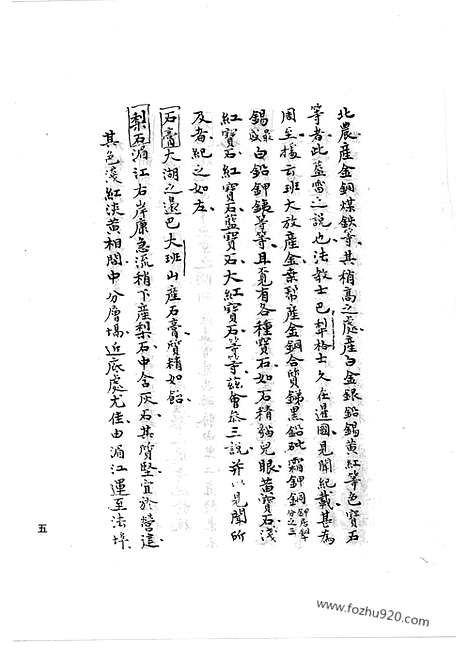 北農產金銅煤鉄等其稍高之處產白金銀鉛錫黃紅等色寶石
等者此蓝雷之說也法敎士巴犁格士久在暹國見聞紀載甚為
周至據云班大放產金棄幇產金銅合質銻黑鉛砒霜鉀銅
錫最盛白鉛鉀銕等等且覔有各種寶石如石精貓兒眼黃寶石淺
紅寶石紅寶石藍寶石大紅寶石等等茲會叅三說并以見聞所
及者紀之如左
石膏大湖之邊巴大班山產石膏質精如飴
梨石湄江右岸廉急流稍下產梨石中含灰石其質堅宜於營造
其色淺紅淡黃相間中分層塲近底處尤佳由湄江運至法埠
五
www.fozhu920.com